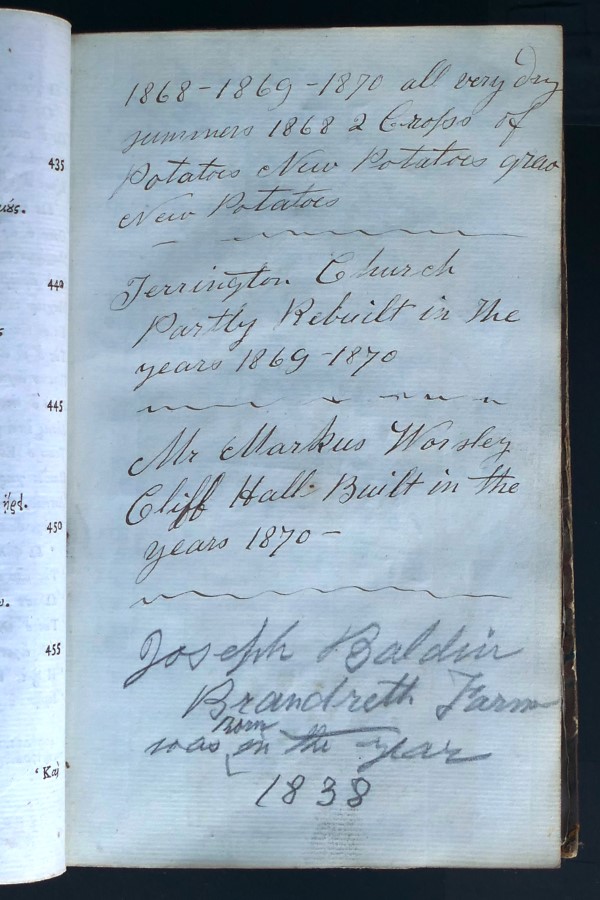 435
440
445
ήξά.
450
υ.
455
‘Καὶ
1868-1869-1870 all very Dry
summers 1868 2 Crops of
Potatoes New Potatoes grew
New Potatoes
Terrington Church
Partly Rebuilt in The
years 1869-1870
Mr Markus Worsley
Cliff Hall Built in the
years 1870-
Joseph Baldin
Brandreth Farm
born
was in the year
1838